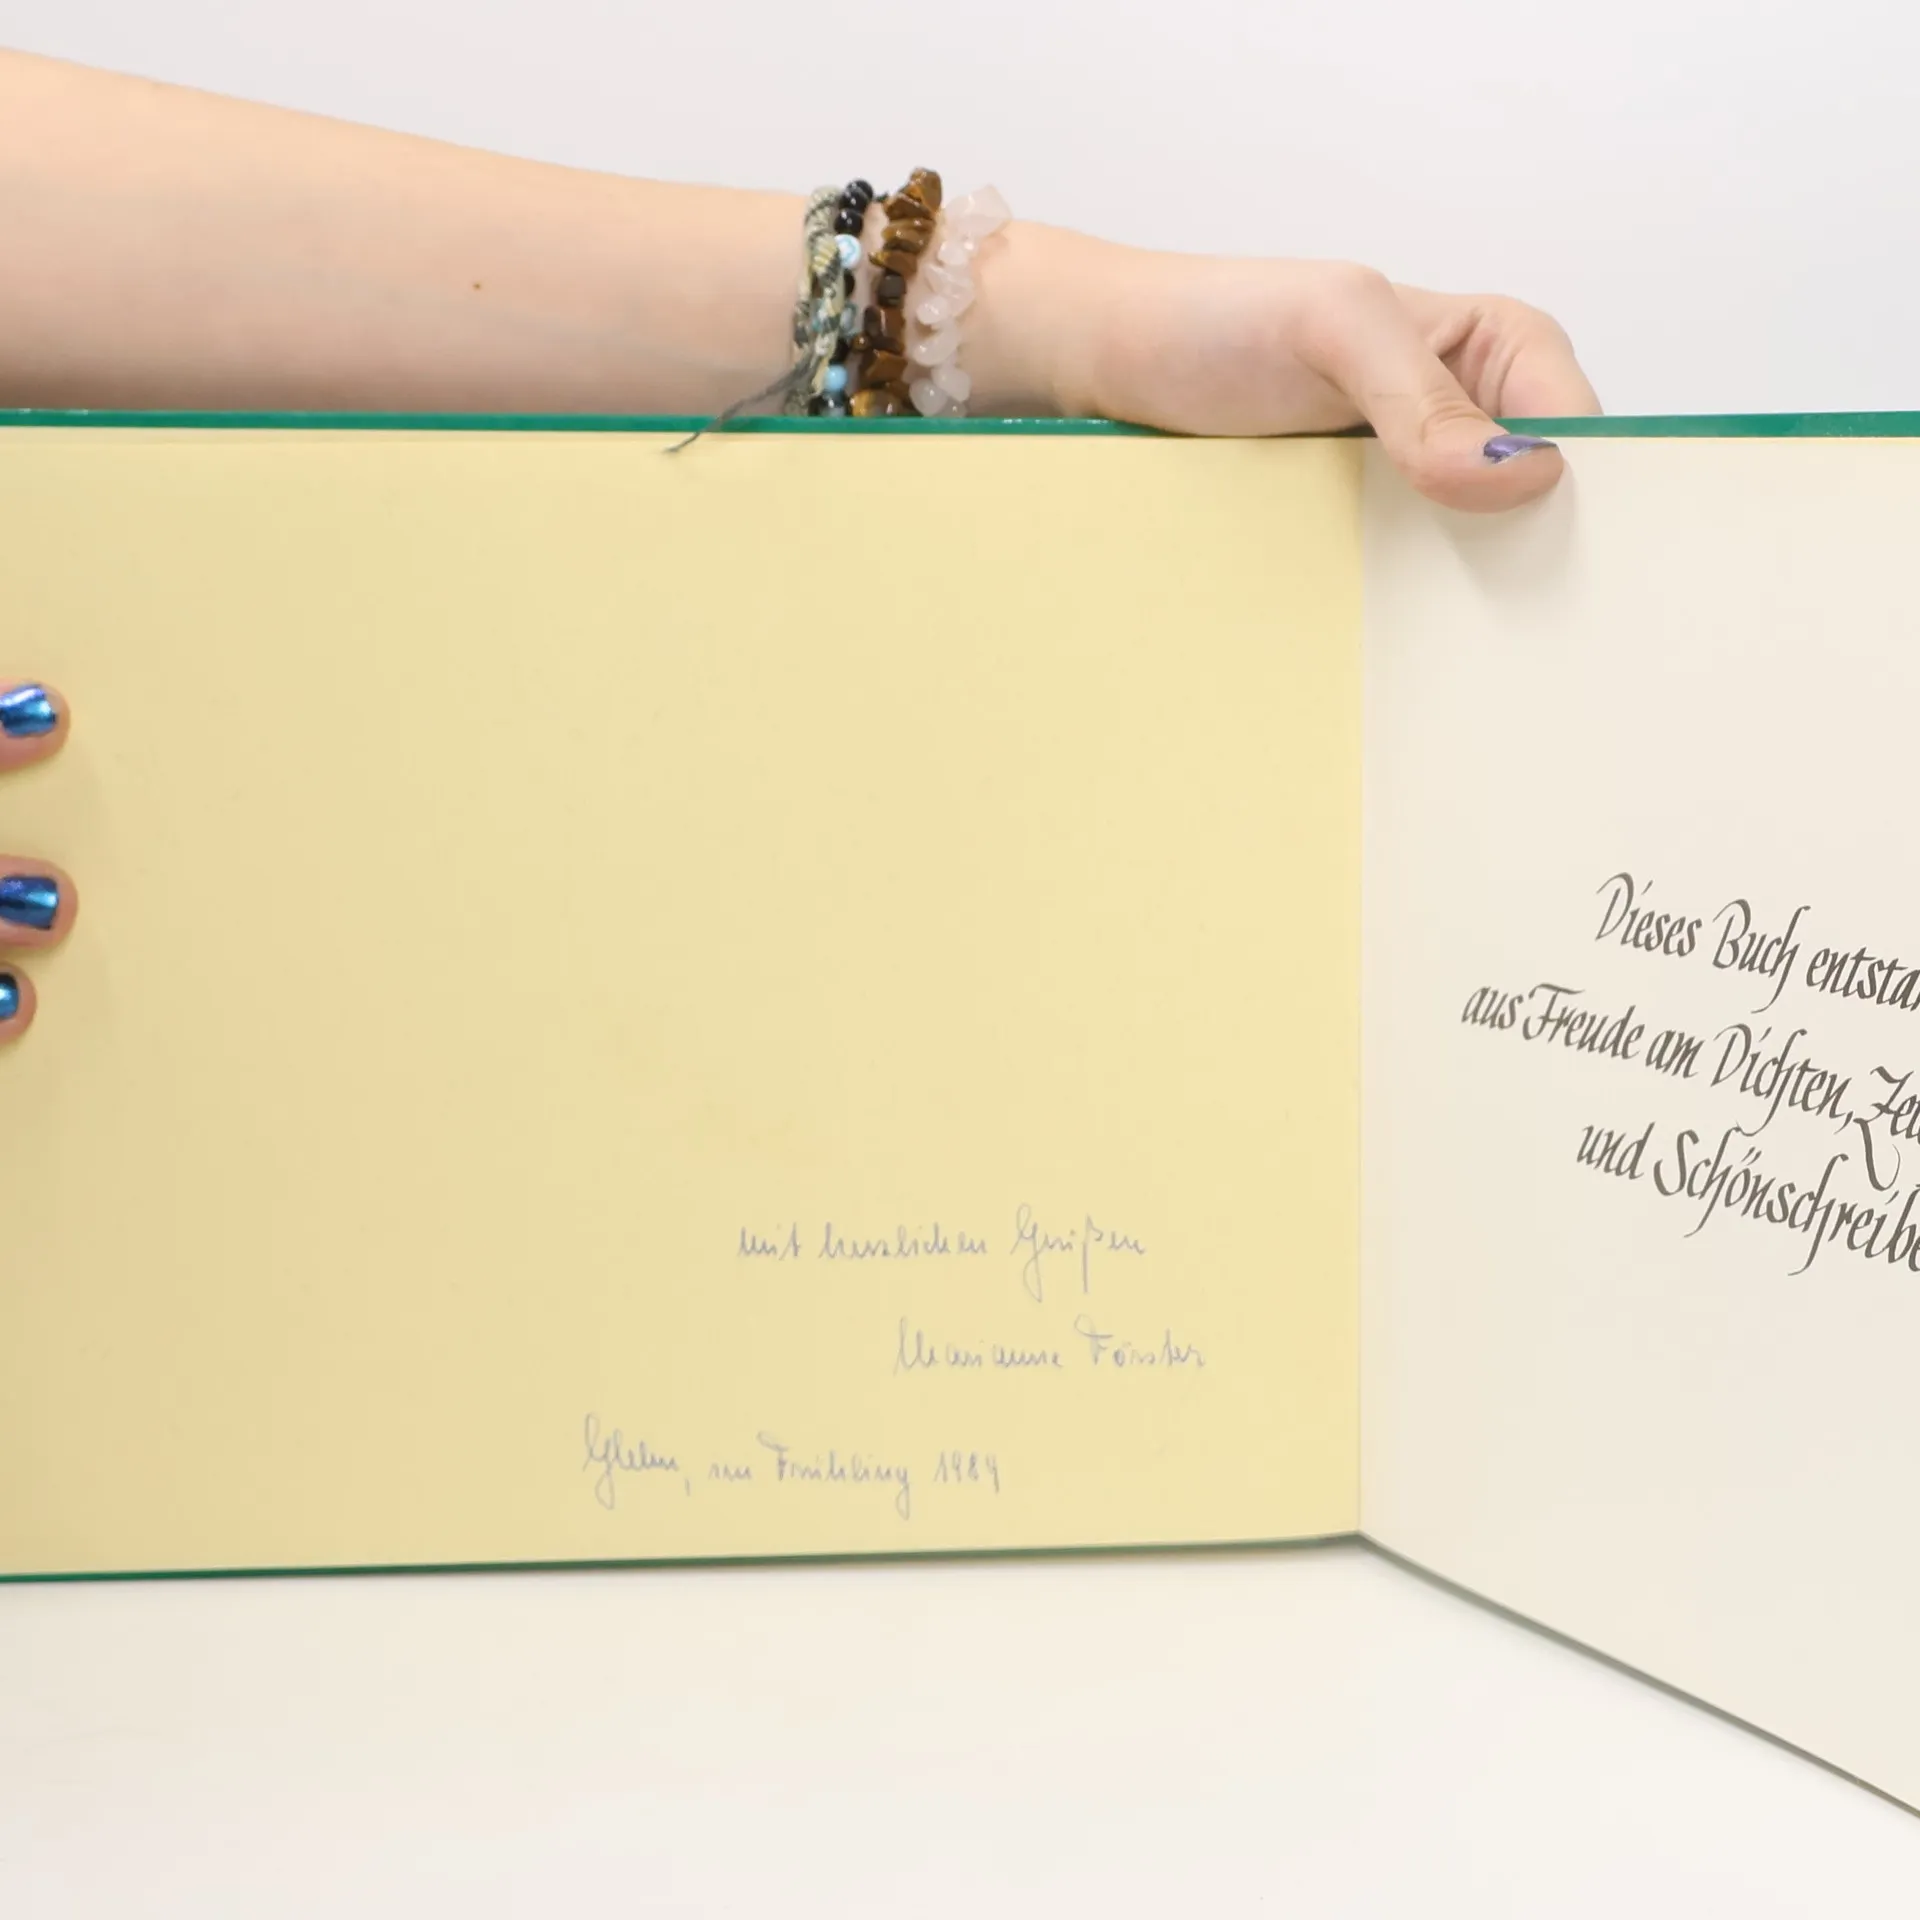 mit herzlichen Grüßen
Marianne Förster
im Frühling 1989
Dieses Buch entsta
aus Freude am Dichten,
und Schönschreibe